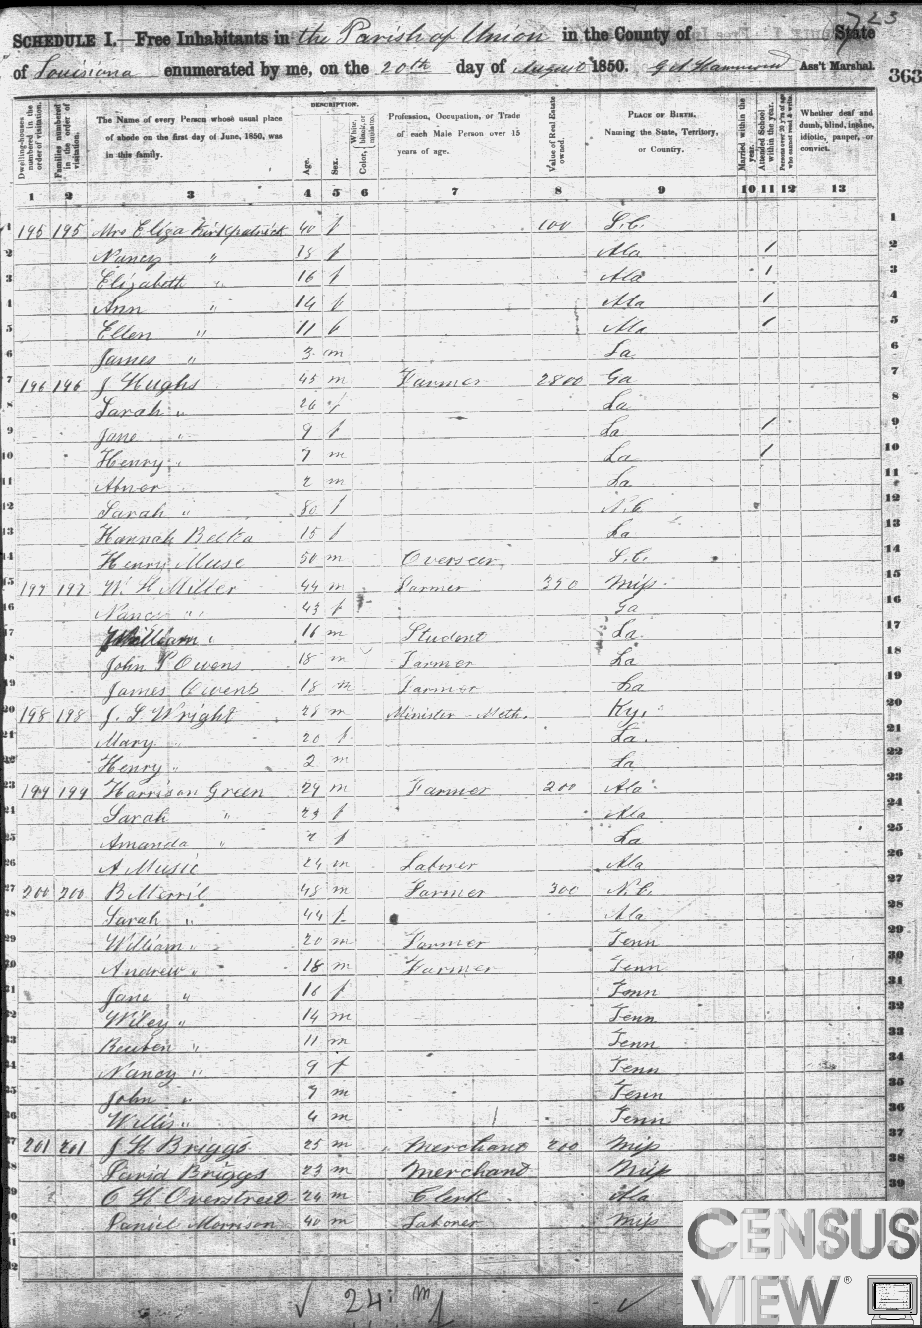 723
SCHEDULE I.—Free Inhabitants in the Parish of Union in the County of State
of Louisiana enumerated by me, on the 20th day of August 1850. Ass't Marshal. 363
Dwelling-houses numbered in the order of visitation. Families numbered in the order of visitation. The Name of every Person whose usual place of abode on the first day of June, 1850, was in this family. DESCRIPTION. Age. Sex. Color, White, black, or mulatto. Profession, Occupation, or Trade of each Male Person over 15 years of age. Value of Real Estate owned. PLACE OF BIRTH. Naming the State, Territory, or Country. Married within the year. Attended School within the year. Persons over 20 y'rs of age who cannot read & write. Whether deaf and dumb, blind, insane, idiotic, pauper, or convict.
1 2 3 4 5 6 7 8 9 10 11 12 13
1 195 195 Mrs Eliza Kirkpatrick 40 f 100 S.C. 1
2 Nancy " f Ala 1 2
3 Elizabeth " 16 f Ala 1 3
4 Ann " 14 f Ala 1 4
5 Ellen " 11 f Ala 1 5
6 James " 3 m La 6
7 196 196 J Hughs 45 m Farmer 2800 Ga 7
8 Sarah " 26 f La 8
9 Jane " 9 f La 1 9
10 Henry " 7 m La 1 10
11 Abner 2 m La 11
12 Sarah " 80 f N.C 12
13 Hannah 15 f La 13
14 Henry Muse 50 m Overseer S.C. 14
15 197 197 W. H Miller 44 m Farmer 350 Miss 15
16 Nancy " 43 f Ga 16
17 William " 16 m Student La 17
18 John P Owens 18 m Farmer La 18
19 James Owens 18 m Farmer La 19
20 198 198 J. L Wright 28 m Minister - Meth. Ky. 20
21 Mary " 20 f La. 21
22 Henry " 2 m La 22
23 199 199 Harrison Green 29 m Farmer 200 Ala 23
24 Sarah " 23 f Ala 24
25 Amanda " 2 f La 25
26 A Music 24 m Laborer Ala 26
27 200 200 B Merril 48 m Farmer 300 N.C. 27
28 Sarah " 44 f Ala 28
29 William " 20 m Farmer Tenn 29
30 Andrew " 18 m Farmer Tenn 30
31 Jane " 16 f Tenn 31
32 Wiley " 14 m Tenn 32
33 Reuben " 11 m Tenn 33
34 Nancy " 9 f Tenn 34
35 John " 7 m Tenn 35
36 Willis " 4 m Tenn 36
37 201 201 J H Briggs 25 m Merchant 200 Miss 37
38 David Briggs 23 m Merchant Miss 38
39 O H Overstreet 24 m Clerk Ala 39
40 Daniel Morrison 40 m Laborer Miss
41
42
24 m
CENSUS VIEW®